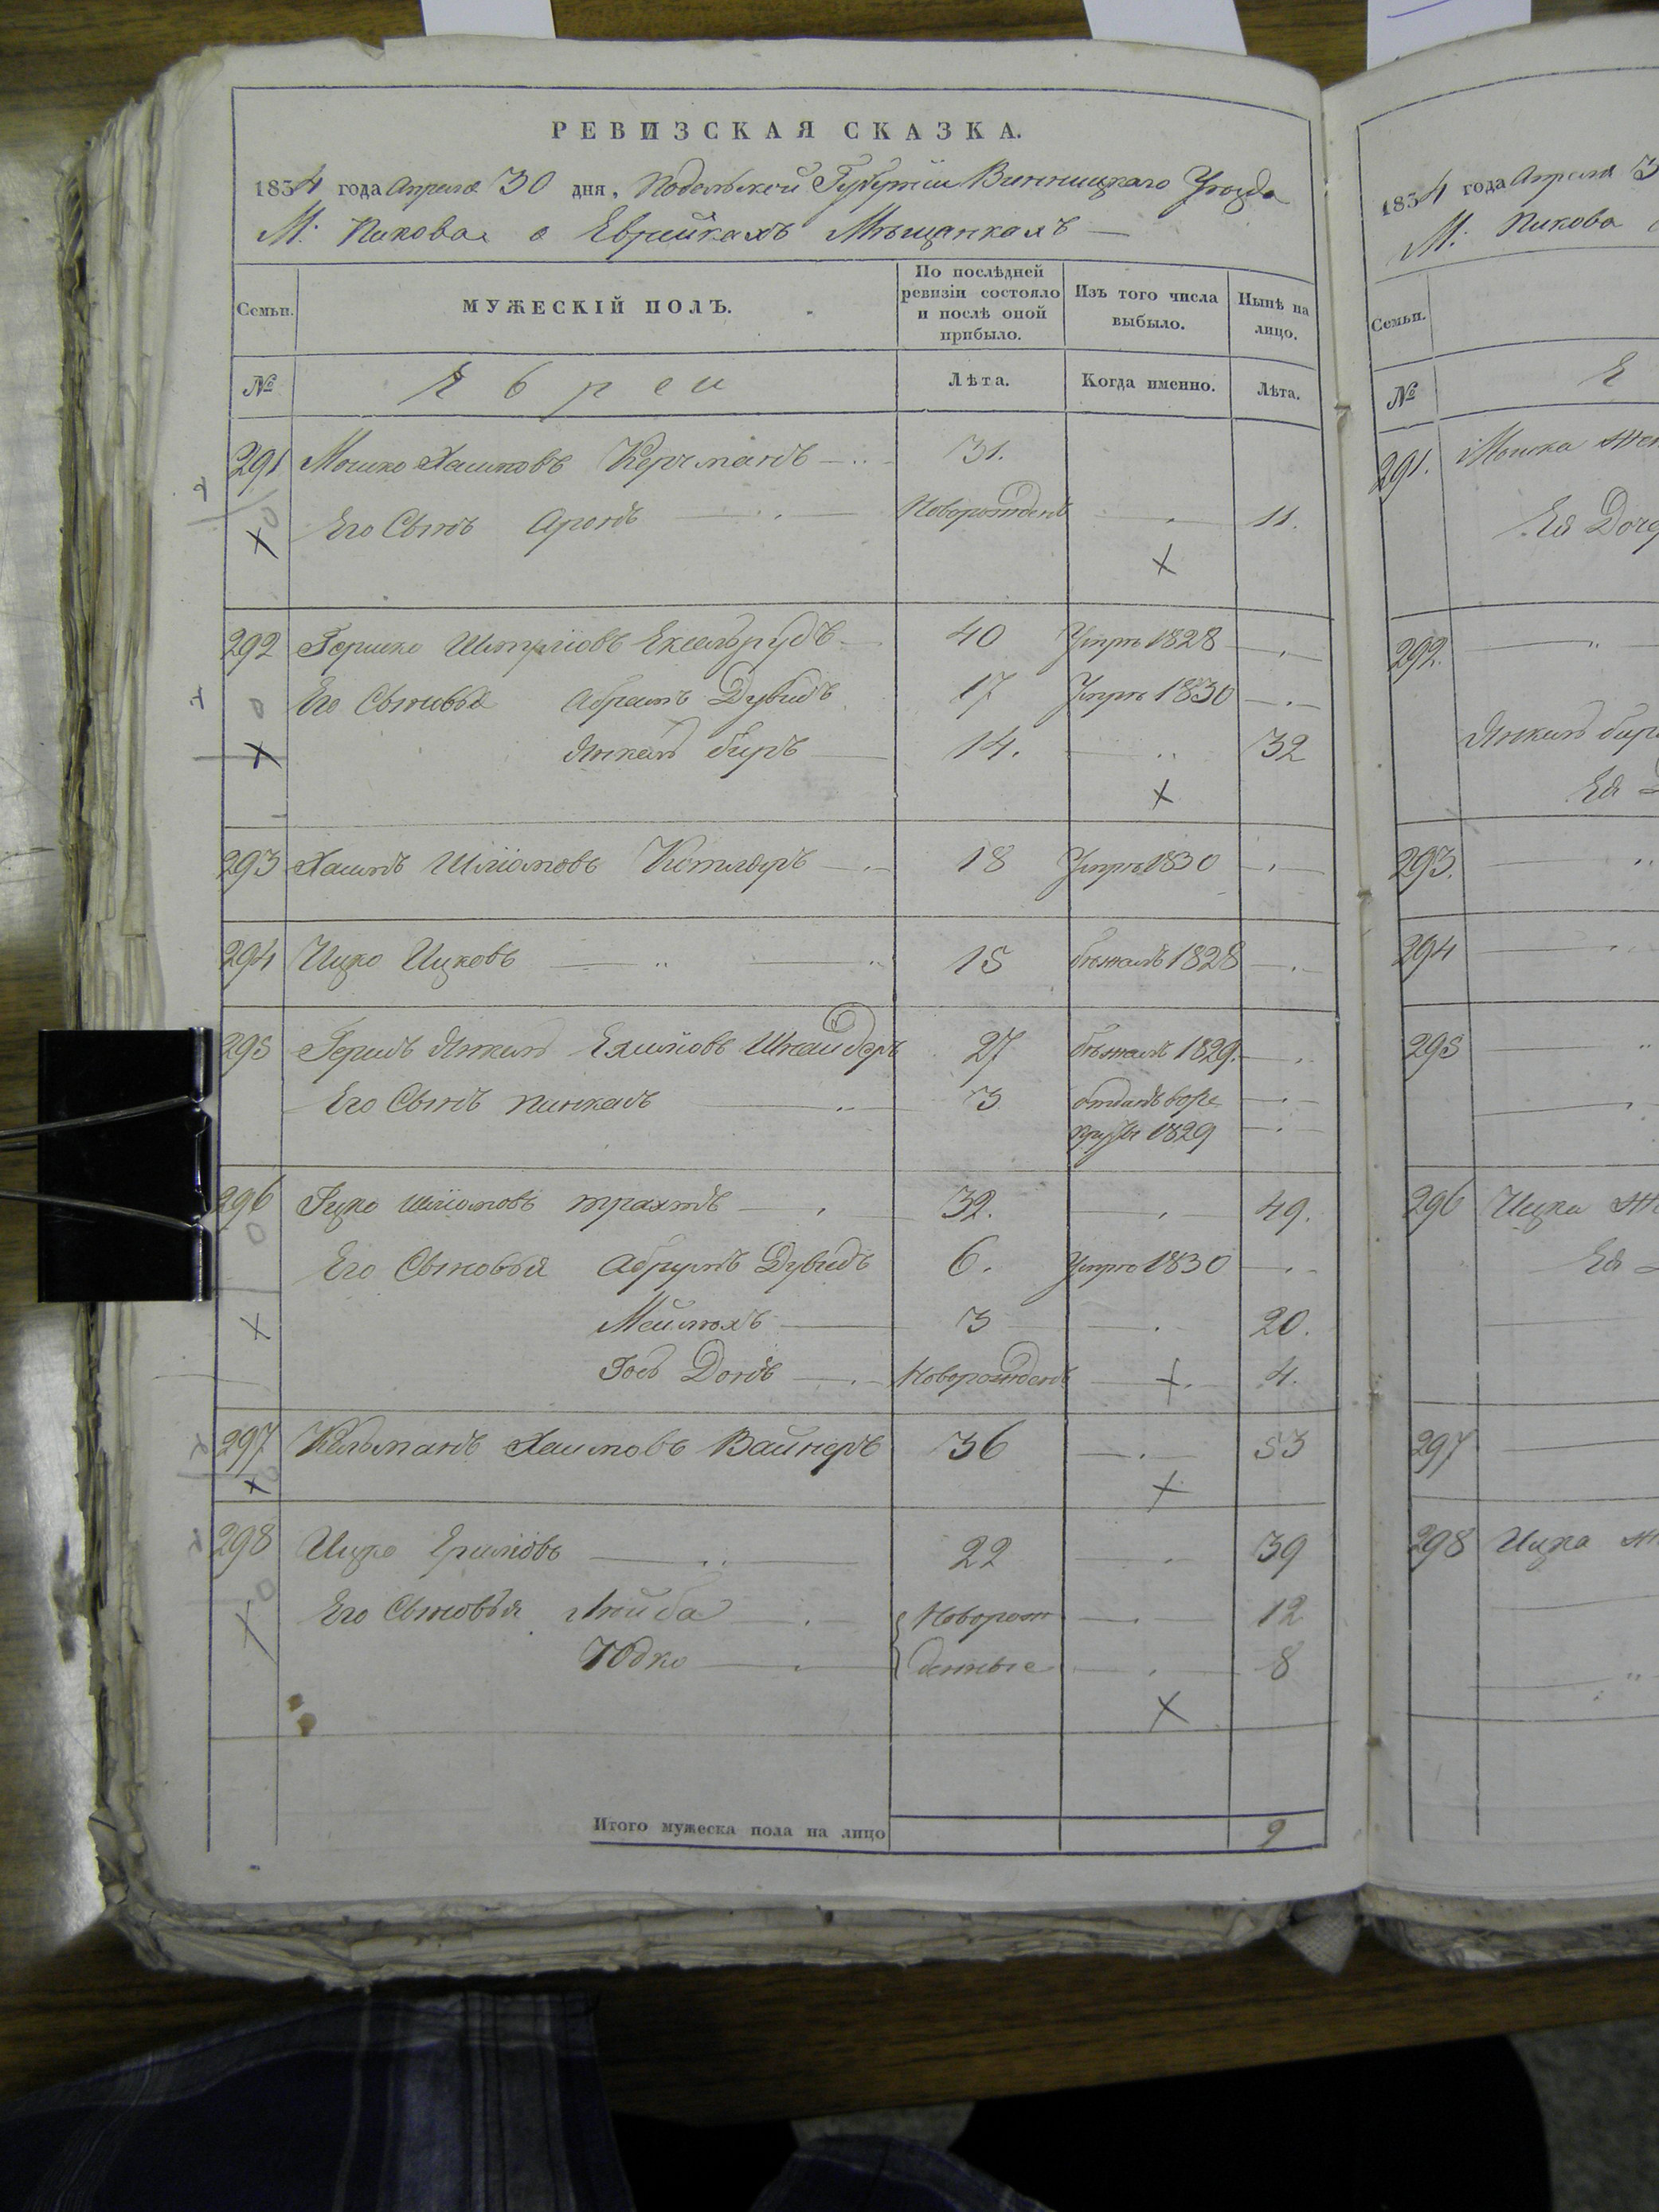 РЕВИЗСКАЯ СКАЗКА.
1834 года Апреля 30 дня, Подольской Губернiи Винницкаго Уезда
М: Пикова о Еврейкахъ Мѣщанкахъ —
Семьи. МУЖЕСКІЙ ПОЛЪ. По послѣдней ревизіи состояло и послѣ оной прибыло. Изъ того числа выбыло. Нынѣ на лицо.
№ Евреи Лѣта. Когда именно. Лѣта.
291 Мошко Хаимовъ 31.
Его Сынъ Аронъ Новорожденъ 11.
292 Гершко 40 Умре 1828
Его Сыновья Абрамъ Дувидъ 17 Умре 1830
Янкель беръ 14. 32
293 Хаимъ Шліомовъ 18 Умре 1830
294 Ицко Ицковъ 15 бѣжалъ 1828
295 Гершъ Янкель 27 бѣжалъ 1829.
Его Сынъ Пинкасъ 3 отданъ в
1829
296 Ицко Шліомовъ 32. 49.
Его Сыновья Абрумъ Дувидъ 6. Умре 1830
Мейлохъ 3 20.
Новорожденъ 4.
297 Кельманъ Хаимовъ Вайнеръ 36 53
298 Ицко 22 39
Его Сыновья Лейба Новорож 12
Юдко денные 8
Итого мужеска пола на лицо 9
1834 года Апреля 3
М: Пикова
Семьи.
№ Е
291. Мошка жен
Ея Доче
292.
Янкель бера
Ея
293.
294
295
296 Ицка ж
Ея
297
298 Ицка ж